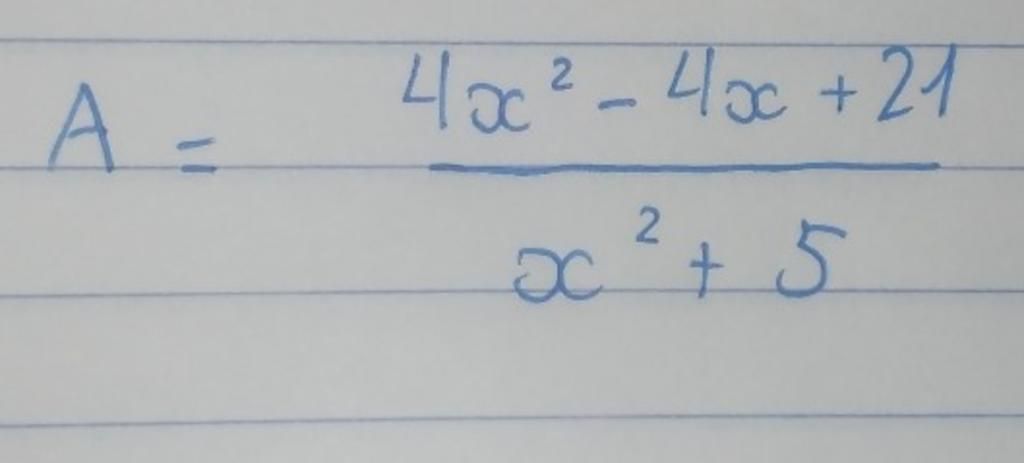 A = \frac{4x^2 - 4x + 21}{x^2 + 5}